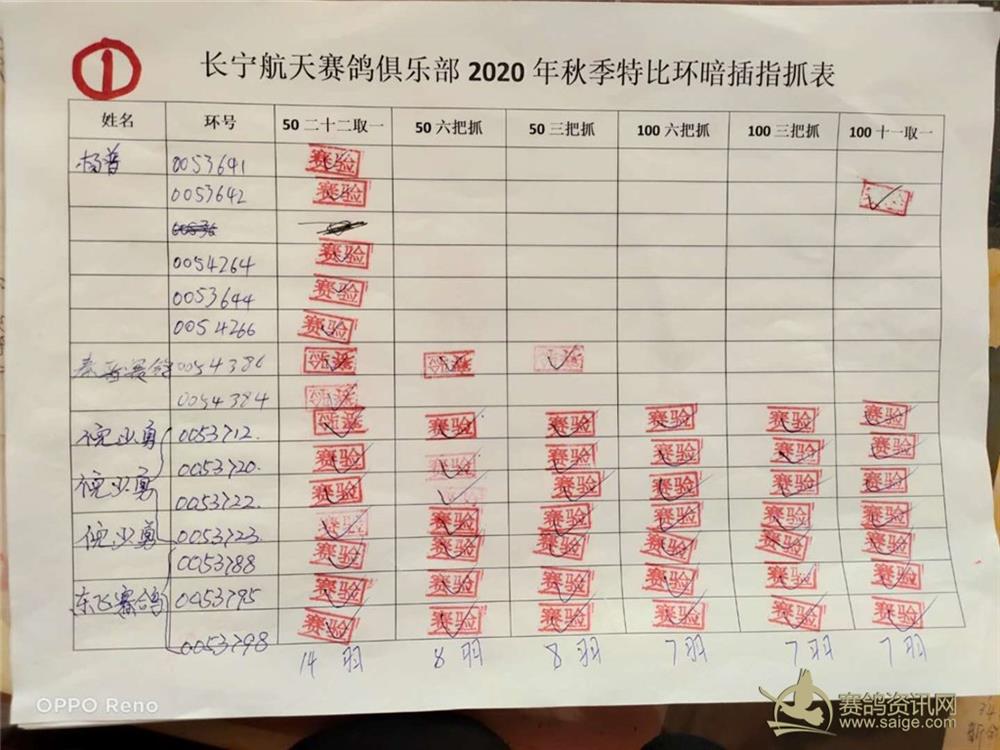 ①
长宁航天赛鸽俱乐部 2020 年秋季特比环暗插指抓表
姓名 环号 50 二十二取一 50 六把抓 50 三把抓 100 六把抓 100 三把抓 100 十一取一
杨普 0053641 赛验
0053642 赛验
0054264 赛验
0053644 赛验
0054266 赛验
赛鸽 0054386
0054384
倪业勇 0053712. 赛验 赛验 赛验 赛验 赛验
0053720. 赛验 赛验 赛验 赛验 赛验 赛验
倪业勇 0053722. 赛验 赛验 赛验 赛验 赛验
倪业勇 0053723 赛验 赛验 赛验 赛验 赛验 赛验
0053788 赛验 赛验 赛验 赛验 赛验 赛验
东飞赛鸽 0053795 赛验 赛验 赛验 赛验 赛验 赛验
0053798 赛验 赛验 赛验 赛验 赛验 赛验
14 羽 8 羽 8 羽 7 羽 7 羽 7 羽
OPPO Reno
赛鸽资讯网
www.saige.com